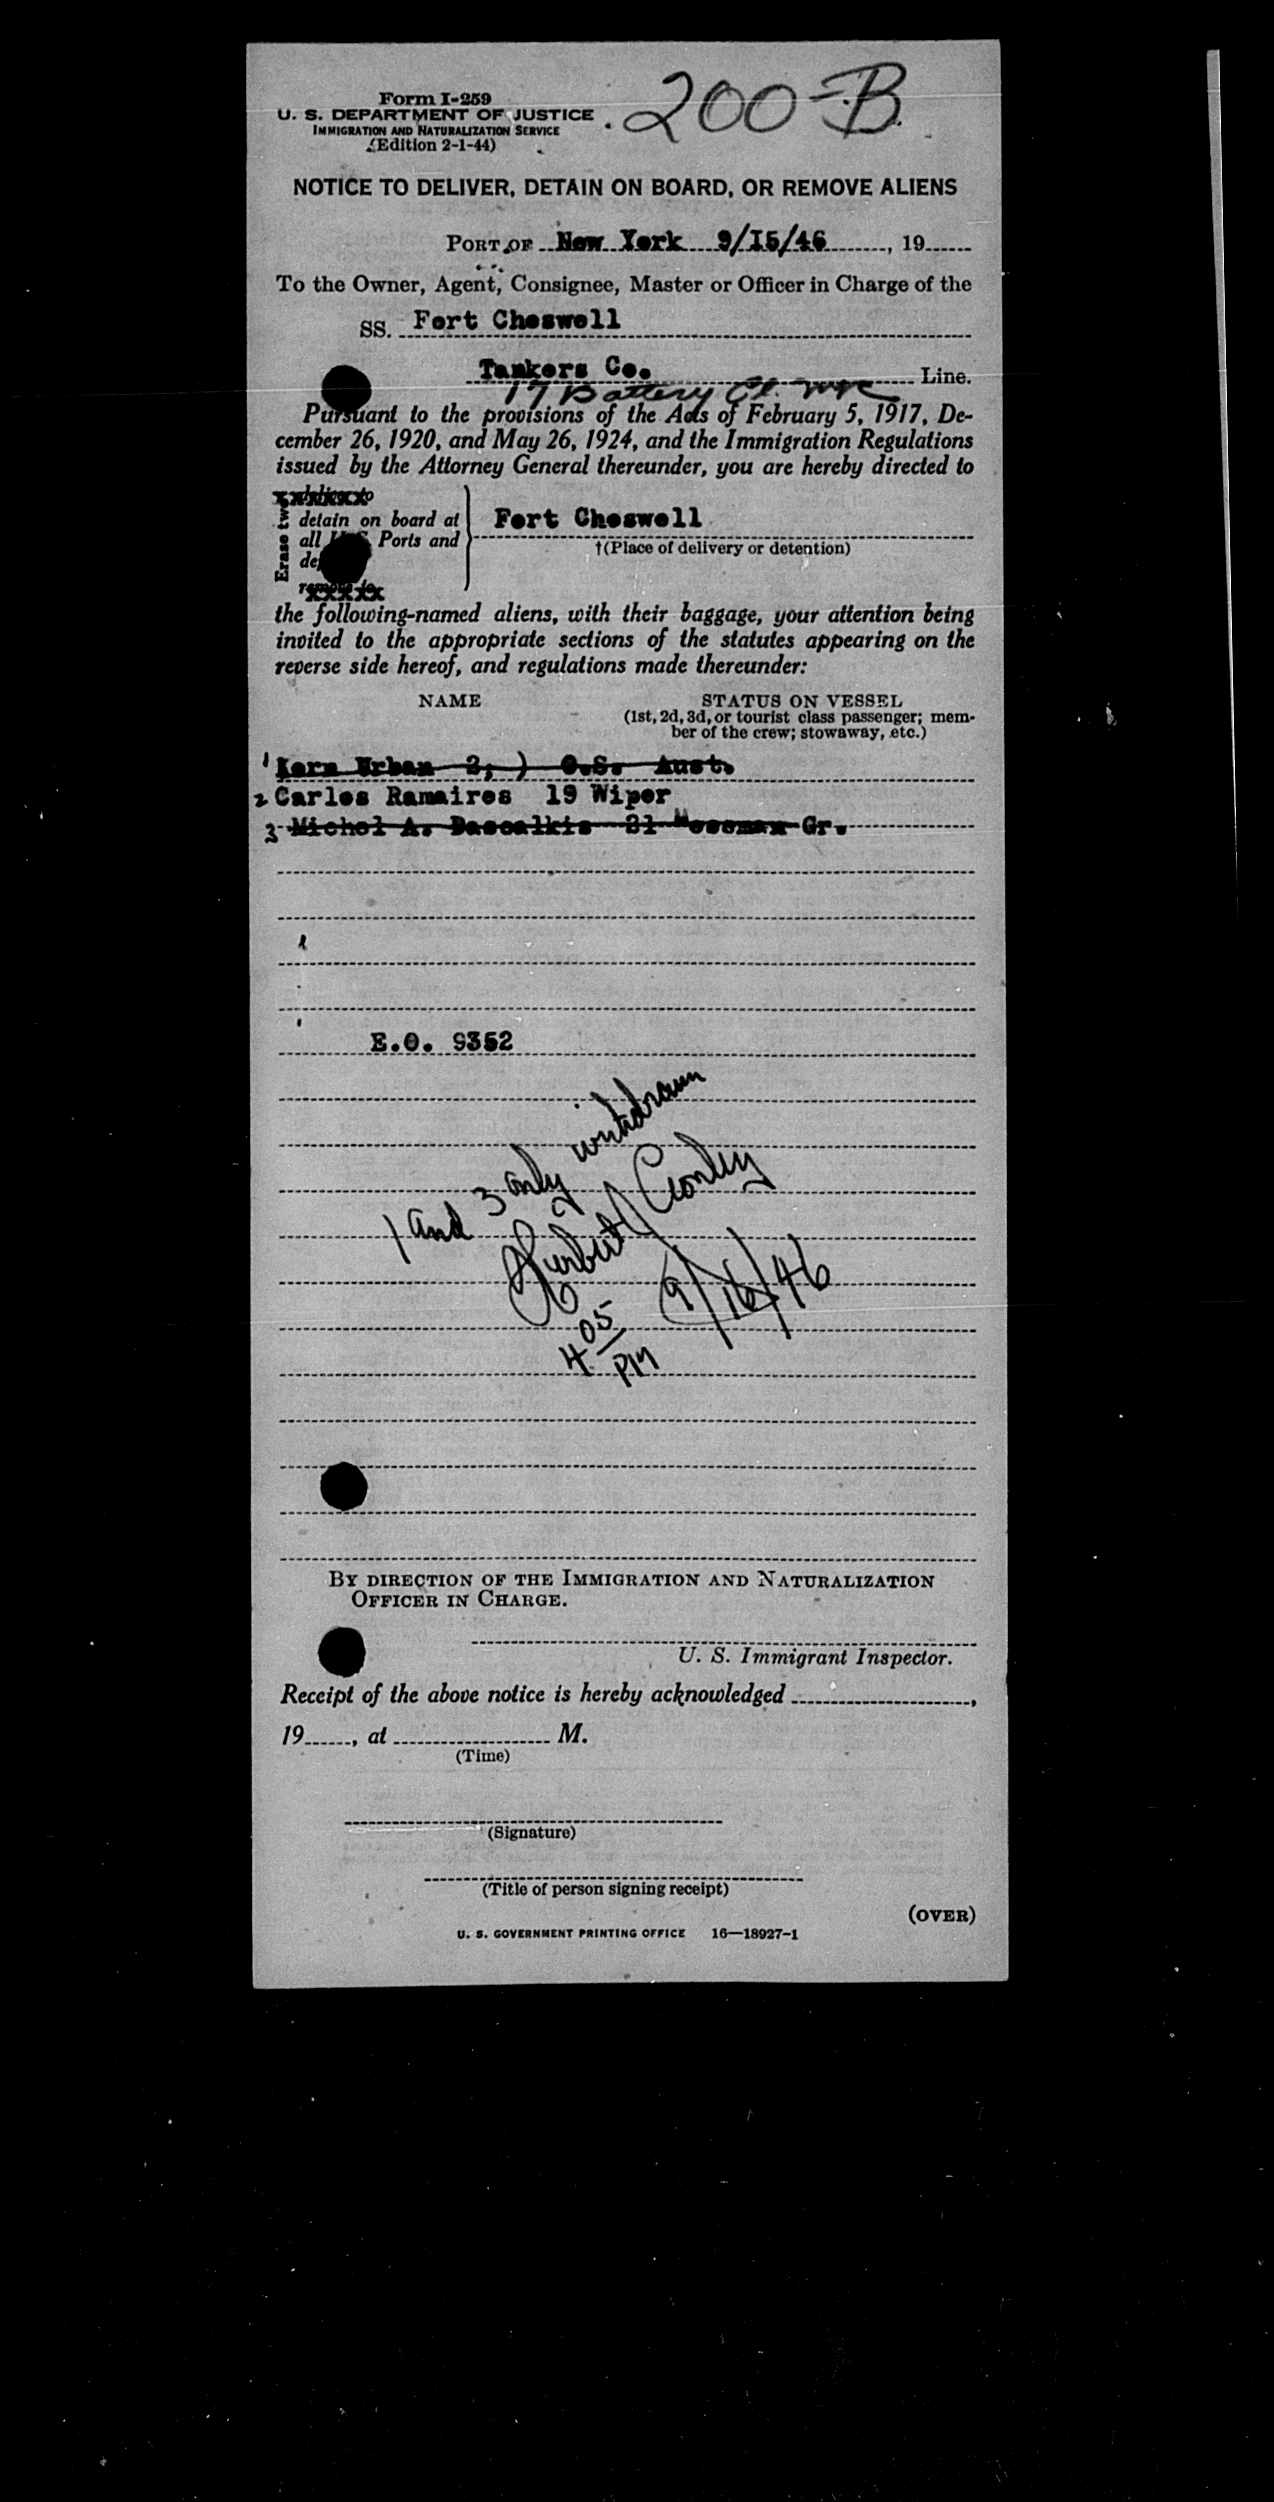 Form I-259
200-B
U. S. DEPARTMENT OF JUSTICE
IMMIGRATION AND NATURALIZATION SERVICE
(Edition 2-1-44)
NOTICE TO DELIVER, DETAIN ON BOARD, OR REMOVE ALIENS
PORT OF New York 9/I5/46, 19
To the Owner, Agent, Consignee, Master or Officer in Charge of the
SS. Fort Cheswell
Tankers Co. Line.
17 Battery Pl.
Pursuant to the provisions of the Acts of February 5, 1917, De-
cember 26, 1920, and May 26, 1924, and the Immigration Regulations
issued by the Attorney General thereunder, you are hereby directed to
Erase two
deliver to
detain on board at
all U.S. Ports and
remove to
Fort Cheswell
†(Place of delivery or detention)
the following-named aliens, with their baggage, your attention being
invited to the appropriate sections of the statutes appearing on the
reverse side hereof, and regulations made thereunder:
NAME STATUS ON VESSEL
(1st, 2d, 3d, or tourist class passenger; mem-
ber of the crew; stowaway, etc.)
1 Karn Urban 2; ) O.S. Aust.
2 Carlos Ramaires 19 Wiper
3 Michel A. Dascalkis 31 Messman Gr.
E.O. 9352
1 and 3 only withdrawn
Herbert J Cronley
9/16/46
4 05 PM
BY DIRECTION OF THE IMMIGRATION AND NATURALIZATION
OFFICER IN CHARGE.
U. S. Immigrant Inspector.
Receipt of the above notice is hereby acknowledged ,
19 , at M.
(Time)
(Signature)
(Title of person signing receipt)
(OVER)
U. S. GOVERNMENT PRINTING OFFICE 16—18927-1